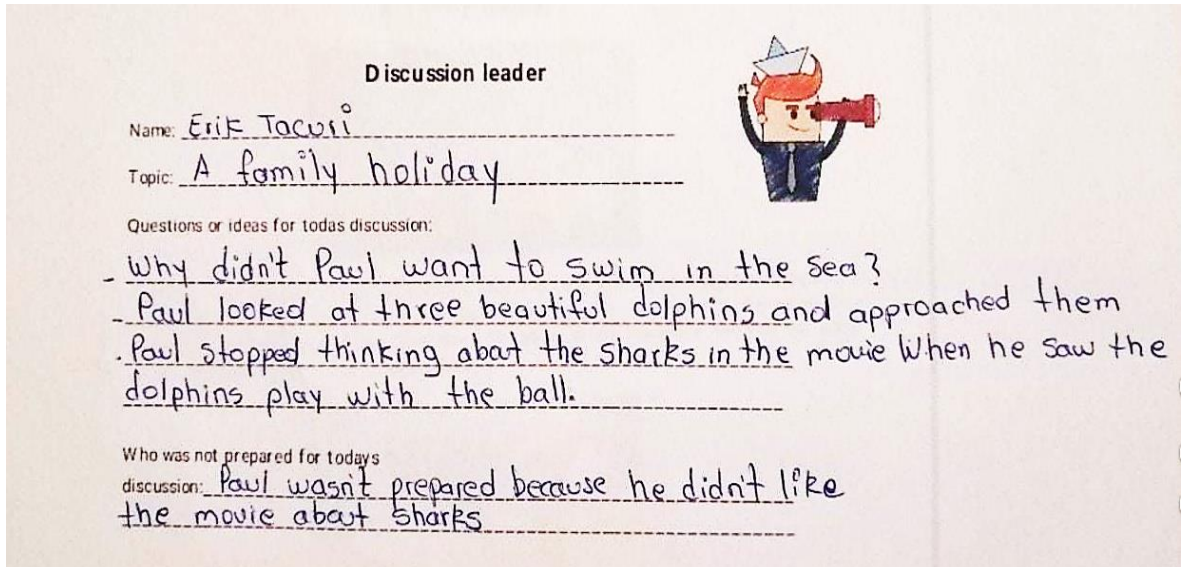 Discussion leader
Name: Erik Tacuri
Topic: A family holiday
Questions or ideas for todas discussion:
- Why didn't Paul want to swim in the sea?
- Paul looked at three beautiful dolphins and approached them
. Paul stopped thinking about the sharks in the movie When he saw the
dolphins play with the ball.
Who was not prepared for todays
discussion: Paul wasn't prepared because he didn't like
the movie about sharks